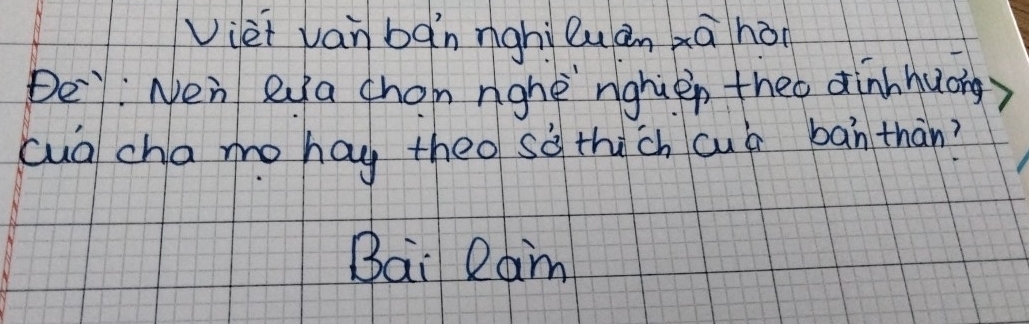 Viết văn bản nghị luận xã hội
Đề: Nên lựa chọn nghề nghiệp theo định hướng
của cha mẹ hay theo sở thích của bản thân?
Bài làm